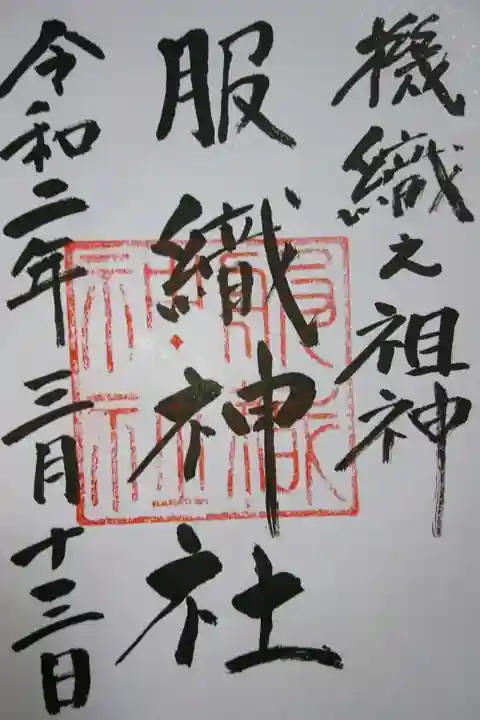 機織之祖神
服織神社
令和二年三月十三日
服織神社